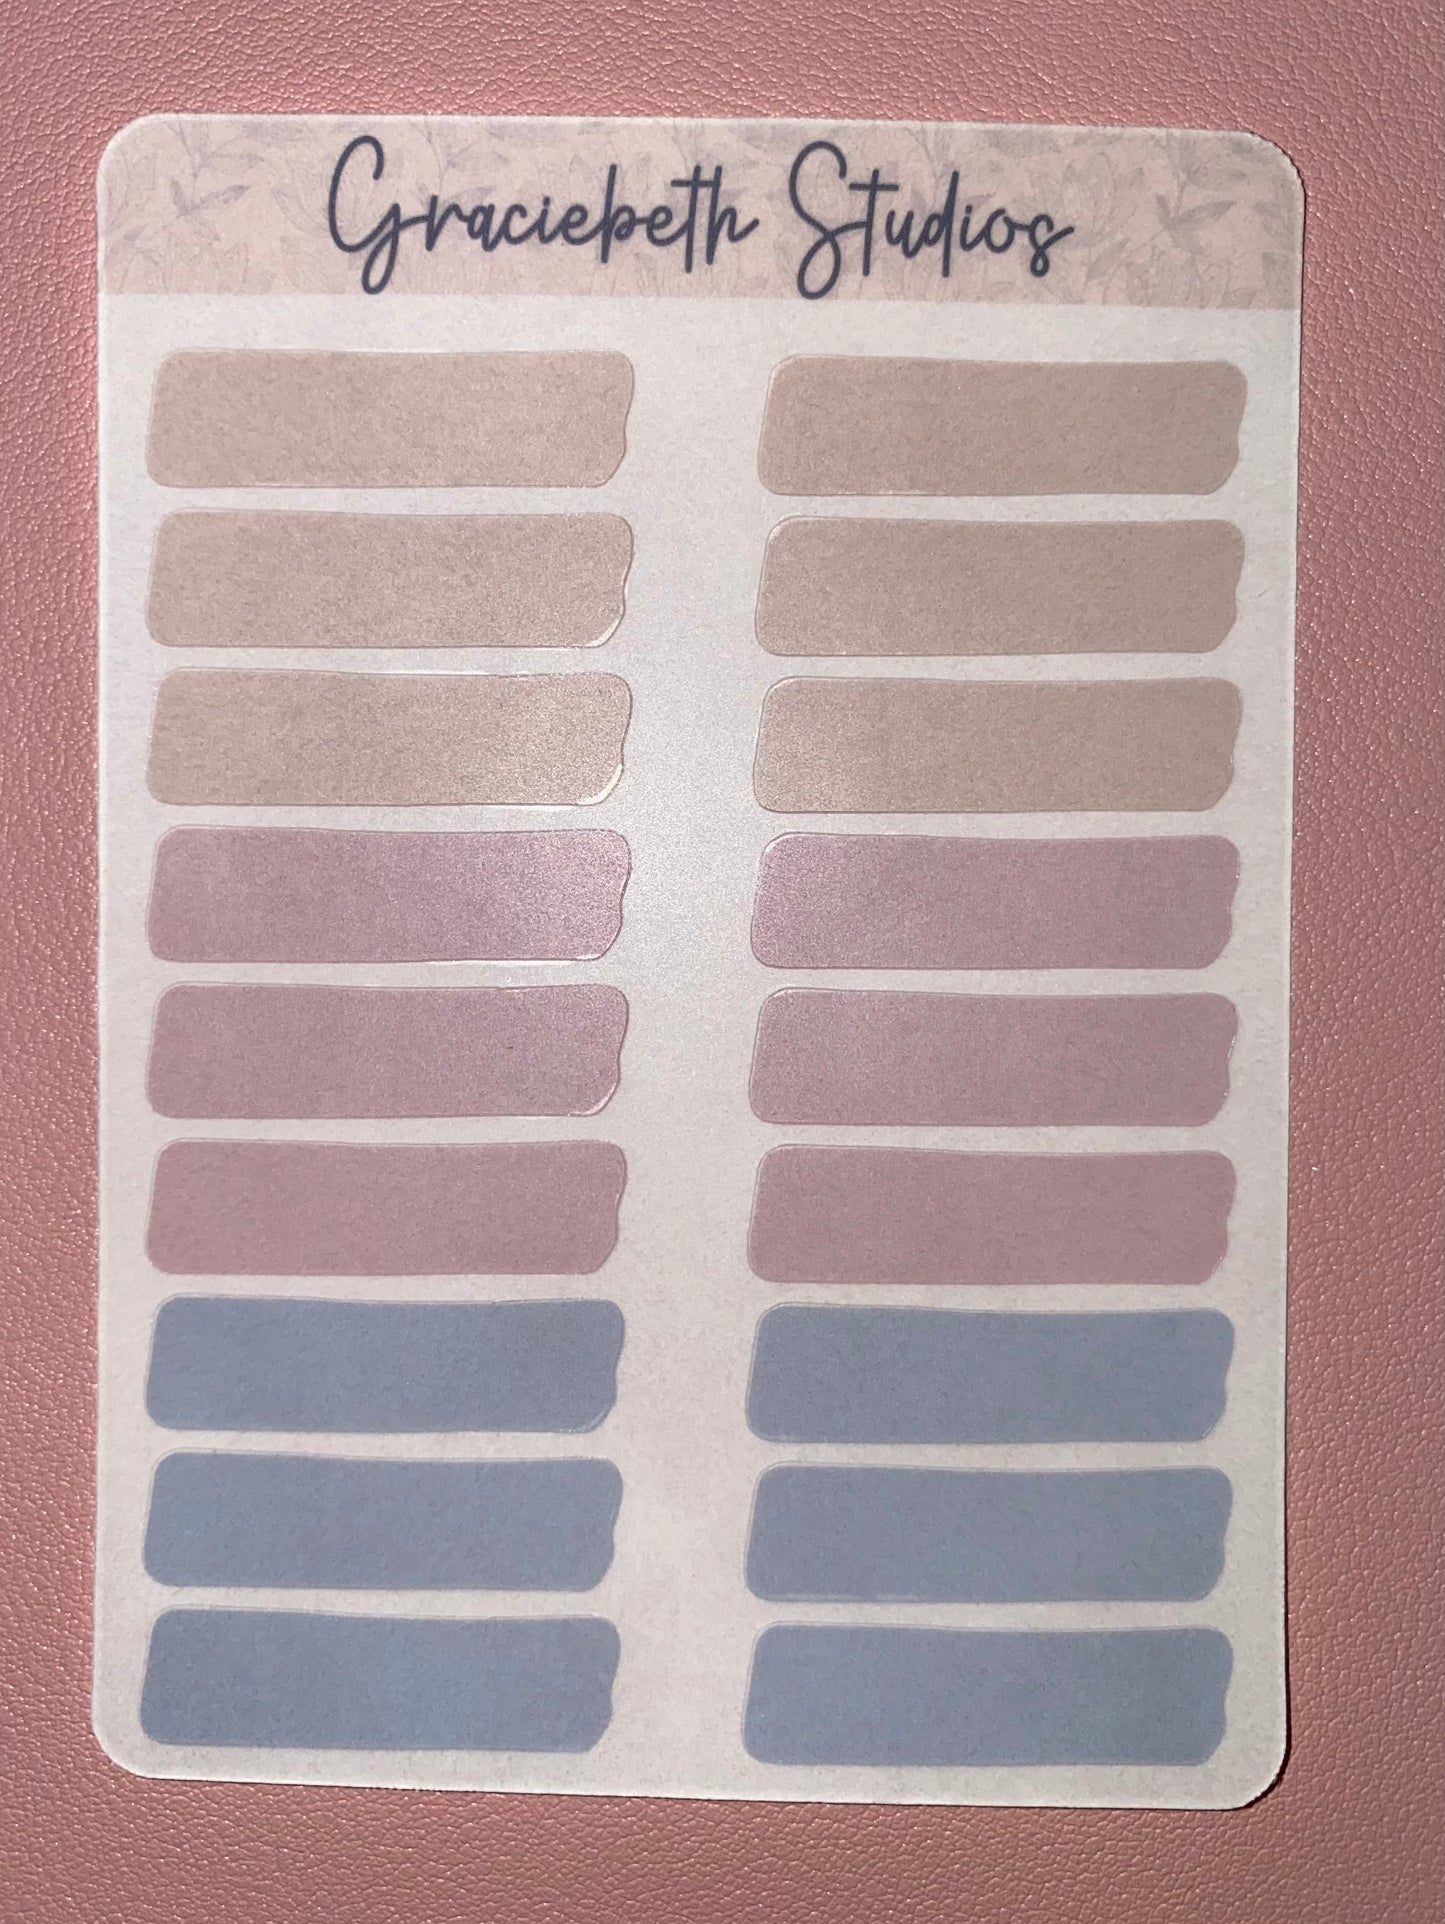 Graciebeth Studios